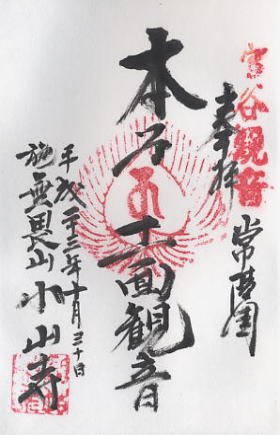 富谷觀音
常陸国
奉拝
本尊十一面観音
平成二十三年十月三十日
施無畏山小山寺